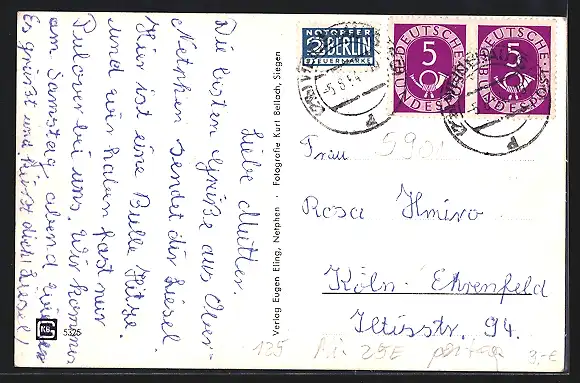 Liebe Mutter.
Die besten Grüße aus Ober-
Netphen sendet dir Liesel
Hier ist eine Bulle Hitze
und wir haben fast nur
Pulover bei uns. Wir kommen
am Samstag abend wieder
Es grüßt und küsst dich Liesel!
KB
5325
Verlag Eugen Eling, Netphen · Fotografie Kurt Bellach, Siegen
NOTOPFER
2 BERLIN
STEUERMARKE
DEUTSCHE
5
BUNDESPOST
DEUTSCHE
5
BUNDESPOST
-5.8.54
Frau
5901
Rosa
Köln-Ehrenfeld
Iltisstr. 94.
135
Mi 25E
3.-€